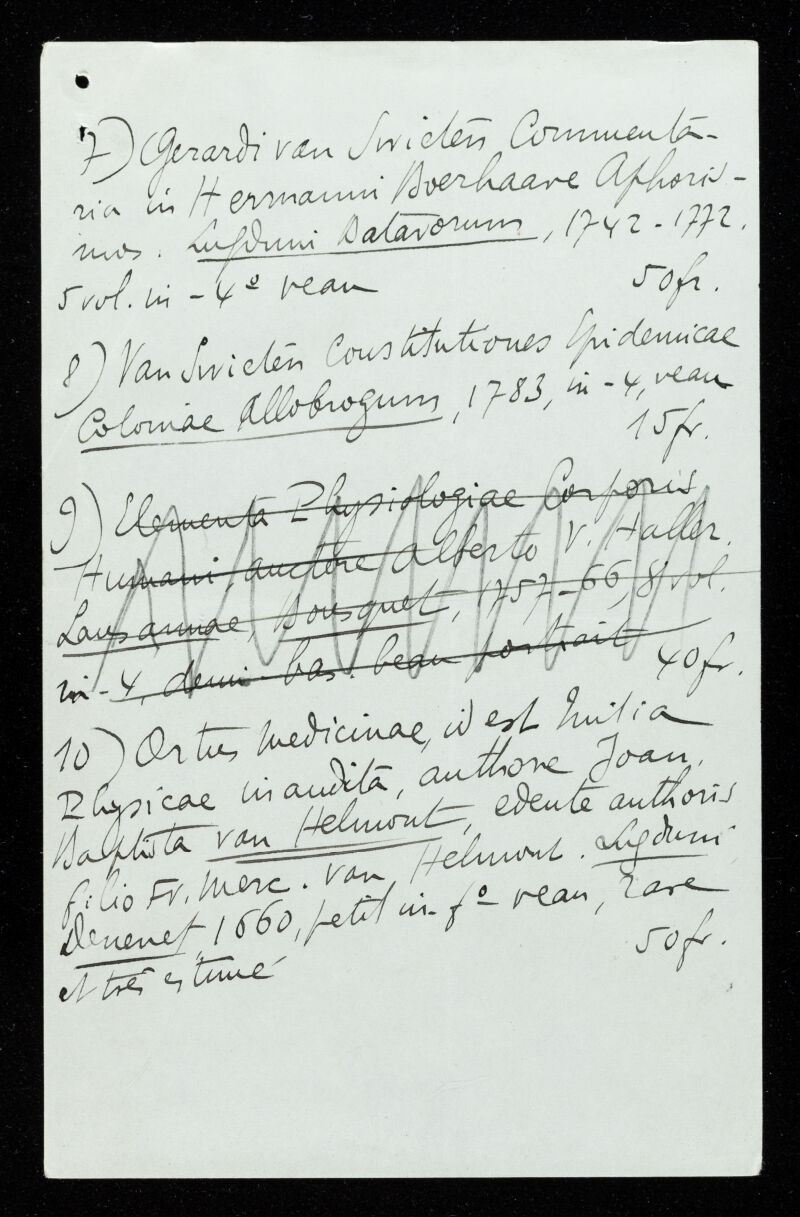 7) Gerardi van Swieten Commenta-
ria in Hermanni Boerhaave Aphoris-
mos. Lugduni Batavorum, 1742-1772.
5 vol. in-4º veau 50fr.
8) Van Swieten Constitutiones Epidemicae
Coloniae Allobrogum, 1783, in-4, veau
15fr.
9) Elementa Physiologiae Corporis
Humani, auctore Alberto V. Haller.
Lausannae, Bousquet, 1757-66, 8 vol.
in-4, demi-bas. beau portrait 40fr.
10) Ortus Medicinae, id est Initia
Physicae inaudita, authore Joan.
Baptista van Helmont, edente authoris
filio Fr. Merc. van Helmont. Lugduni
Devenet, 1660, petit in-fº veau, rare
et très estimé 50fr.